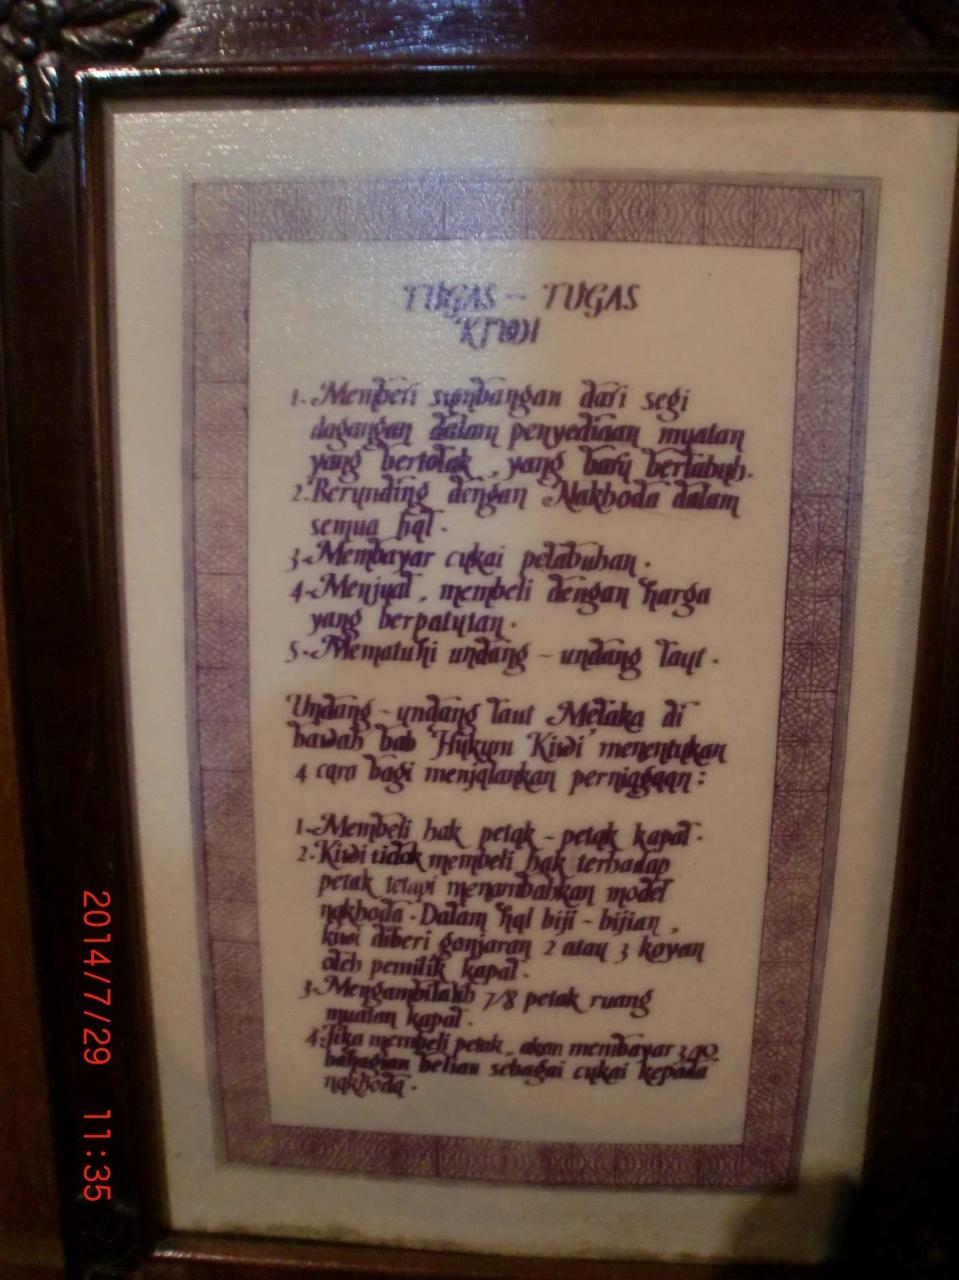 TUGAS - TUGAS
'KIWI
1. Memberi sumbangan dari segi
dagangan dalam penyediaan muatan
yang bertolak, yang baru berlabuh.
2. Berunding dengan Nakhoda dalam
semua hal.
3. Membayar cukai pelabuhan.
4. Menjual, membeli dengan harga
yang berpatutan.
5. Mematuhi undang - undang laut.
Undang - undang laut Melaka di
bawah bab 'Hukum Kiwi' menentukan
4 cara bagi menjalankan perniagaan:
1. Membeli hak petak - petak kapal.
2. Kiwi tidak membeli hak terhadap
petak tetapi menambahkan model
nakhoda. Dalam hal biji - bijian,
kiwi diberi ganjaran 2 atau 3 koyan
oleh pemilik kapal.
3. Mengambilalih 7/8 petak ruang
muatan kapal.
4. Jika membeli petak, akan membayar
bahagian belian sebagai cukai kepada
nakhoda.
2014/7/29 11:35